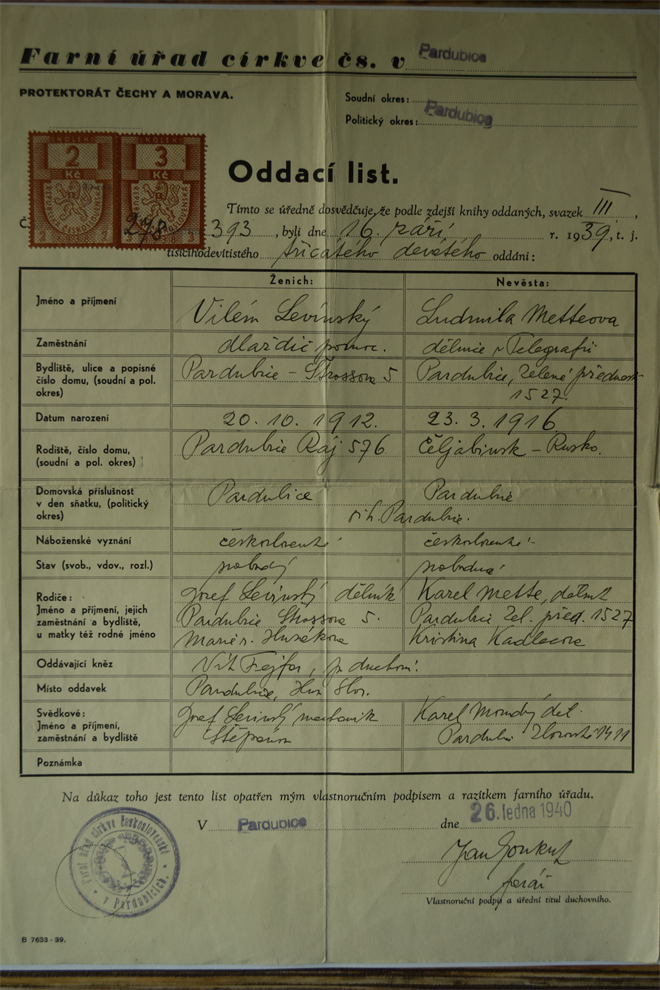 Farní úřad církve čs. v Pardubice
PROTEKTORÁT ČECHY A MORAVA.
Soudní okres: Pardubice
Politický okres:
KOLEK KOLEK
2 3
Kč Kč
278
Oddací list.
Tímto se úředně dosvědčuje, že podle zdejší knihy oddaných, svazek III,
393, byli dne 16. září r. 1939, t. j.
tisícíhodevítistého třicátého devátého oddáni:
Ženich: Nevěsta:
Jméno a příjmení Vilém Levínský Ludmila Metteova
Zaměstnání dlaždič pomoc. dělnice v Telegrafii
Bydliště, ulice a popisné Pardubice – Štrossova 5 Pardubice, Zelené předměstí
číslo domu, (soudní a pol. 1527.
okres)
Datum narození 20. 10. 1912. 23. 3. 1916
Rodiště, číslo domu, Pardubice Ráj 576 Čeljabinsk – Rusko.
(soudní a pol. okres)
Domovská příslušnost Pardubice Pardubice
v den sňatku, (politický
okres) Pardubice.
Náboženské vyznání československé československé
Stav (svob., vdov., rozl.) svobodný svobodná
Rodiče: Josef Levínský dělník Karel Mette, dělník
Jméno a příjmení, jejich Pardubice Štrossova 5. Pardubice Zel. před. 1527
zaměstnání a bydliště,
u matky též rodné jméno Marie r. Husáková Kristina Kadlecova
Oddávající kněz Vít Fejfar, duchovní
Místo oddavek Pardubice, Hus. Sbor.
Svědkové: Josef Levínský Karel Moudrý děl.
Jméno a příjmení,
zaměstnání a bydliště Pardubice 1411
Poznámka
Na důkaz toho jest tento list opatřen mým vlastnoručním podpisem a razítkem farního úřadu.
V Pardubice dne 26. ledna 1940
farář
Vlastnoruční podpis a úřední titul duchovního.
Farní úřad církve československé v Pardubicích.
B 7633-39.